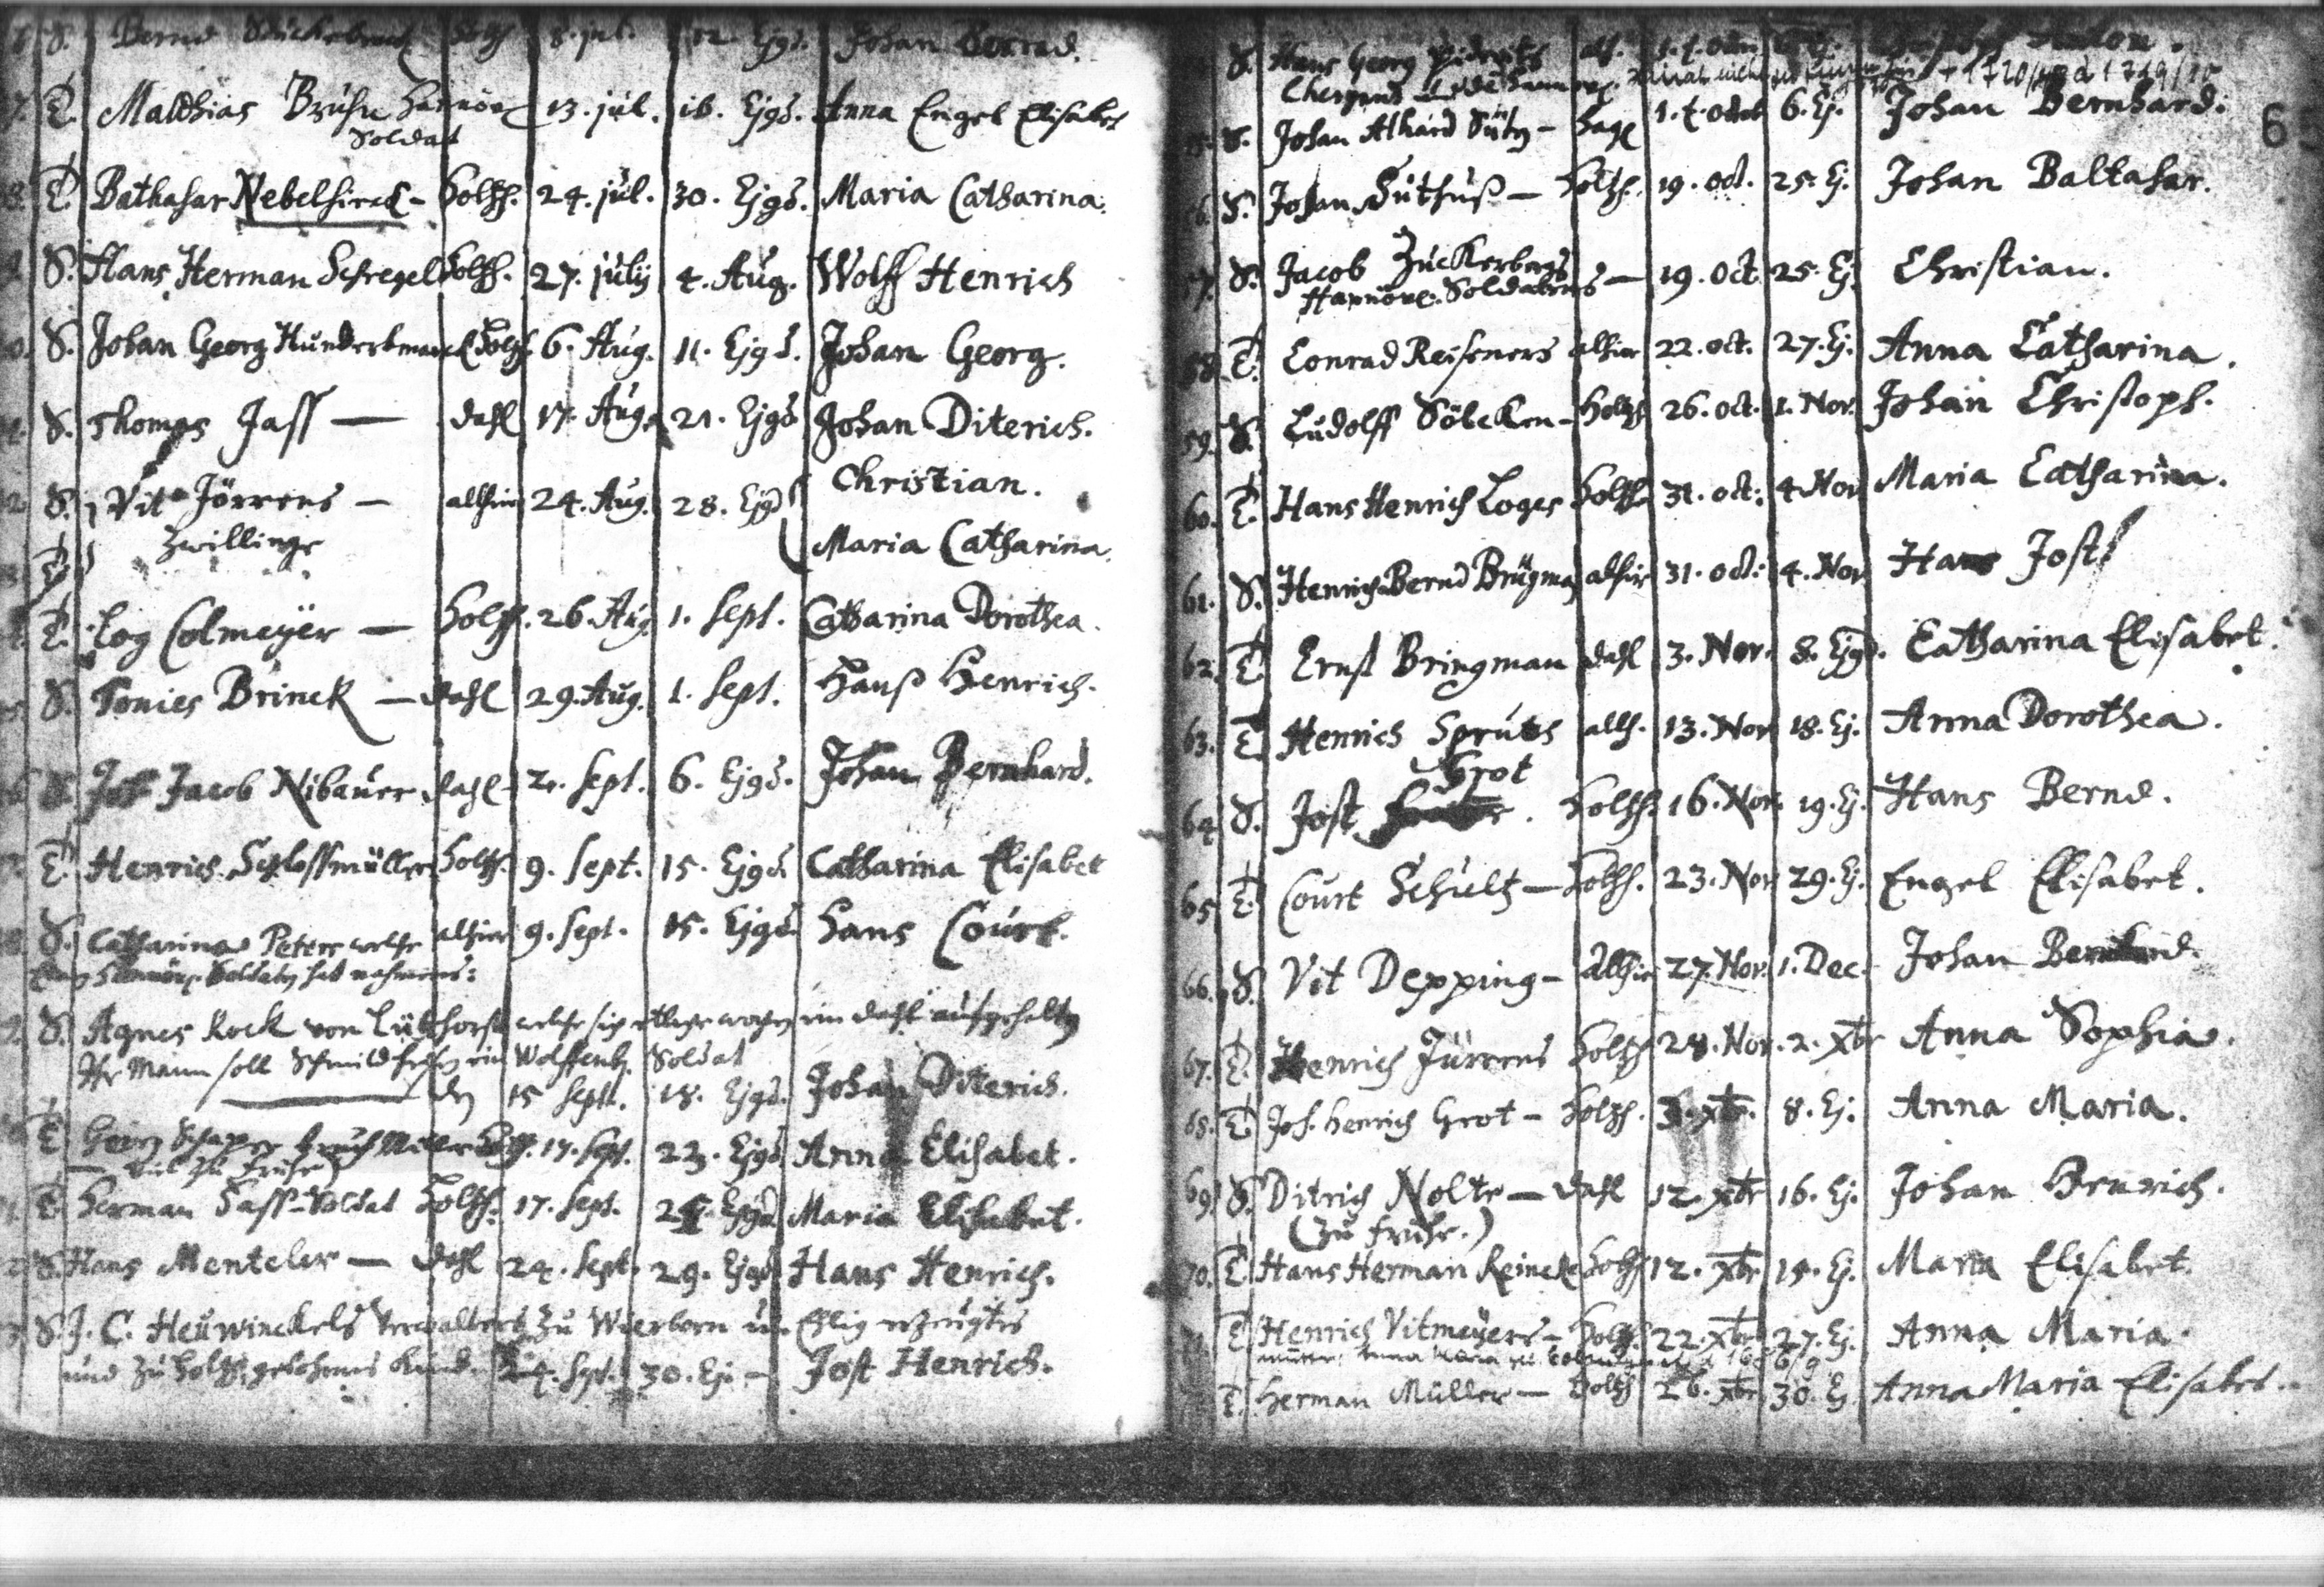 S. Bernd holtzh. 8. jul. 12. Ejgd. Johan Conrad.
7. T. Matthias Bruhn Hannöv. 13. jul. 16. Ejgd. Anna Engel Elisabet
Soldat
8. T. Balthasar Nebelsieck - holtzh. 24. jul. 30. Ejgd. Maria Catharina.
S. Hans Herman Schregel holtzh. 27. julij 4. Aug. Wolff Henrich
S. Johan Georg Hundertmarck holtzh. 6. Aug. 11. Ejgd. Johan Georg.
S. Thomas Jass — dahl 17. Aug. 21. Ejgd Johan Diterich.
S. Vit Jörrens — allhier 24. Aug. 28. Ejgd Christian.
Zwillinge
T. Maria Catharina.
T. Log Colmeyer — holtzh. 26. Aug 1. Sept. Catharina Dorothea.
S. Tonies Brinck — dahl 29. Aug. 1. Sept. Hanß Henrich.
S. Jacob Nibauer dahl 2. Sept. 6. Ejgd. Johan Bernhard.
T. Henrich Schlossmüller holtzh. 9. Sept. 15. Ejgd. Catharina Elisabet
S. Catharina Peters welche allhier 9. Sept. 15. Ejgd. Hans Court.
Soldaten hat nahmens:
S. Agnes Kock von Lüthorst welche sich etliche wochen im dahl aufgehalten
Ihr Mann soll Schmild heissen ein Wolffenb. Soldat
den 15 Sept. 18. Ejgd. Johan Diterich.
T. Schaper holtzh. 17. Sept. 23. Ejgd Anna Elisabet.
— viel zu fruhe
T. Herman Hass - Soldat holtzh. 17. Sept. Ejgd Maria Elisabet.
S. Hans Menteler — dahl 24. Sept. 29. Ejgd Hans Henrich.
S. J. C. Heuwinckels Verwalters zu Wierborn un Ehlig erzeugtes
und zu holtzh. gebohrnes Kind. 24. Spt. 30. Ej. — Jost Henrich.
S. Hans Georg alh.
Johan Bernhard.
S. Johan Alhard — hage 1. oct 6. Ej.
S. Johan Suthuß — holtzh. 19. oct. 25. Ej. Johan Baltasar.
S. Jacob Zuckerbergs
Hannöve. Soldatens — 19. Oct. 25. Ej Christian.
58. T. Conrad Reiseners alhier 22. oct. 27. Ej. Anna Catharina.
59. S. Ludolff Söbeken - holtzh 26. oct. 1. Nov. Johan Christoph.
60. T. Hans Henrich Loges holtzh. 31. oct. 4 Nov Maria Catharina.
61. S. Henrich Bernd Brügman alhier 31. oct. 4. Nov Hans Jost
62. T. Ernst Bringman dahl 3. Nov. 8. Ejgd. Catharina Elisabet.
63. T. Henrich Sprutes allh. 13. Nov 18. Ej. Anna Dorothea.
Grot
64. S. Jost holtzh. 16. Nov. 19. Ej. Hans Bernd.
65. T. Court Schultz — holtzh. 23. Nov 29. Ej. Engel Elisabet.
66. S. Vit Depping - Allhier 27. Nov. 1. Dec. Johan Bernhard.
67. T. Henrich Jürrens holtzh 28. Nov. 2. Xbr Anna Sophia.
68. T. Joh. Henrich Grot - holtzh. 3. Xbr. 8. Ej. Anna Maria.
69. S. Ditrich Nolte — dahl 12. Xbr 16. Ej. Johan Henrich.
(zu fruhe.)
70. T. Hans Herman Reineke holtzh 12. Xbr. 15. Ej. Maria Elisabet.
71. T. Henrich Vitmeyers - holtzh. 22. Xbr 27. Ej Anna Maria.
T. Herman Müller — holtzh 26. Xbr 30. Ej Anna Maria Elisabet.